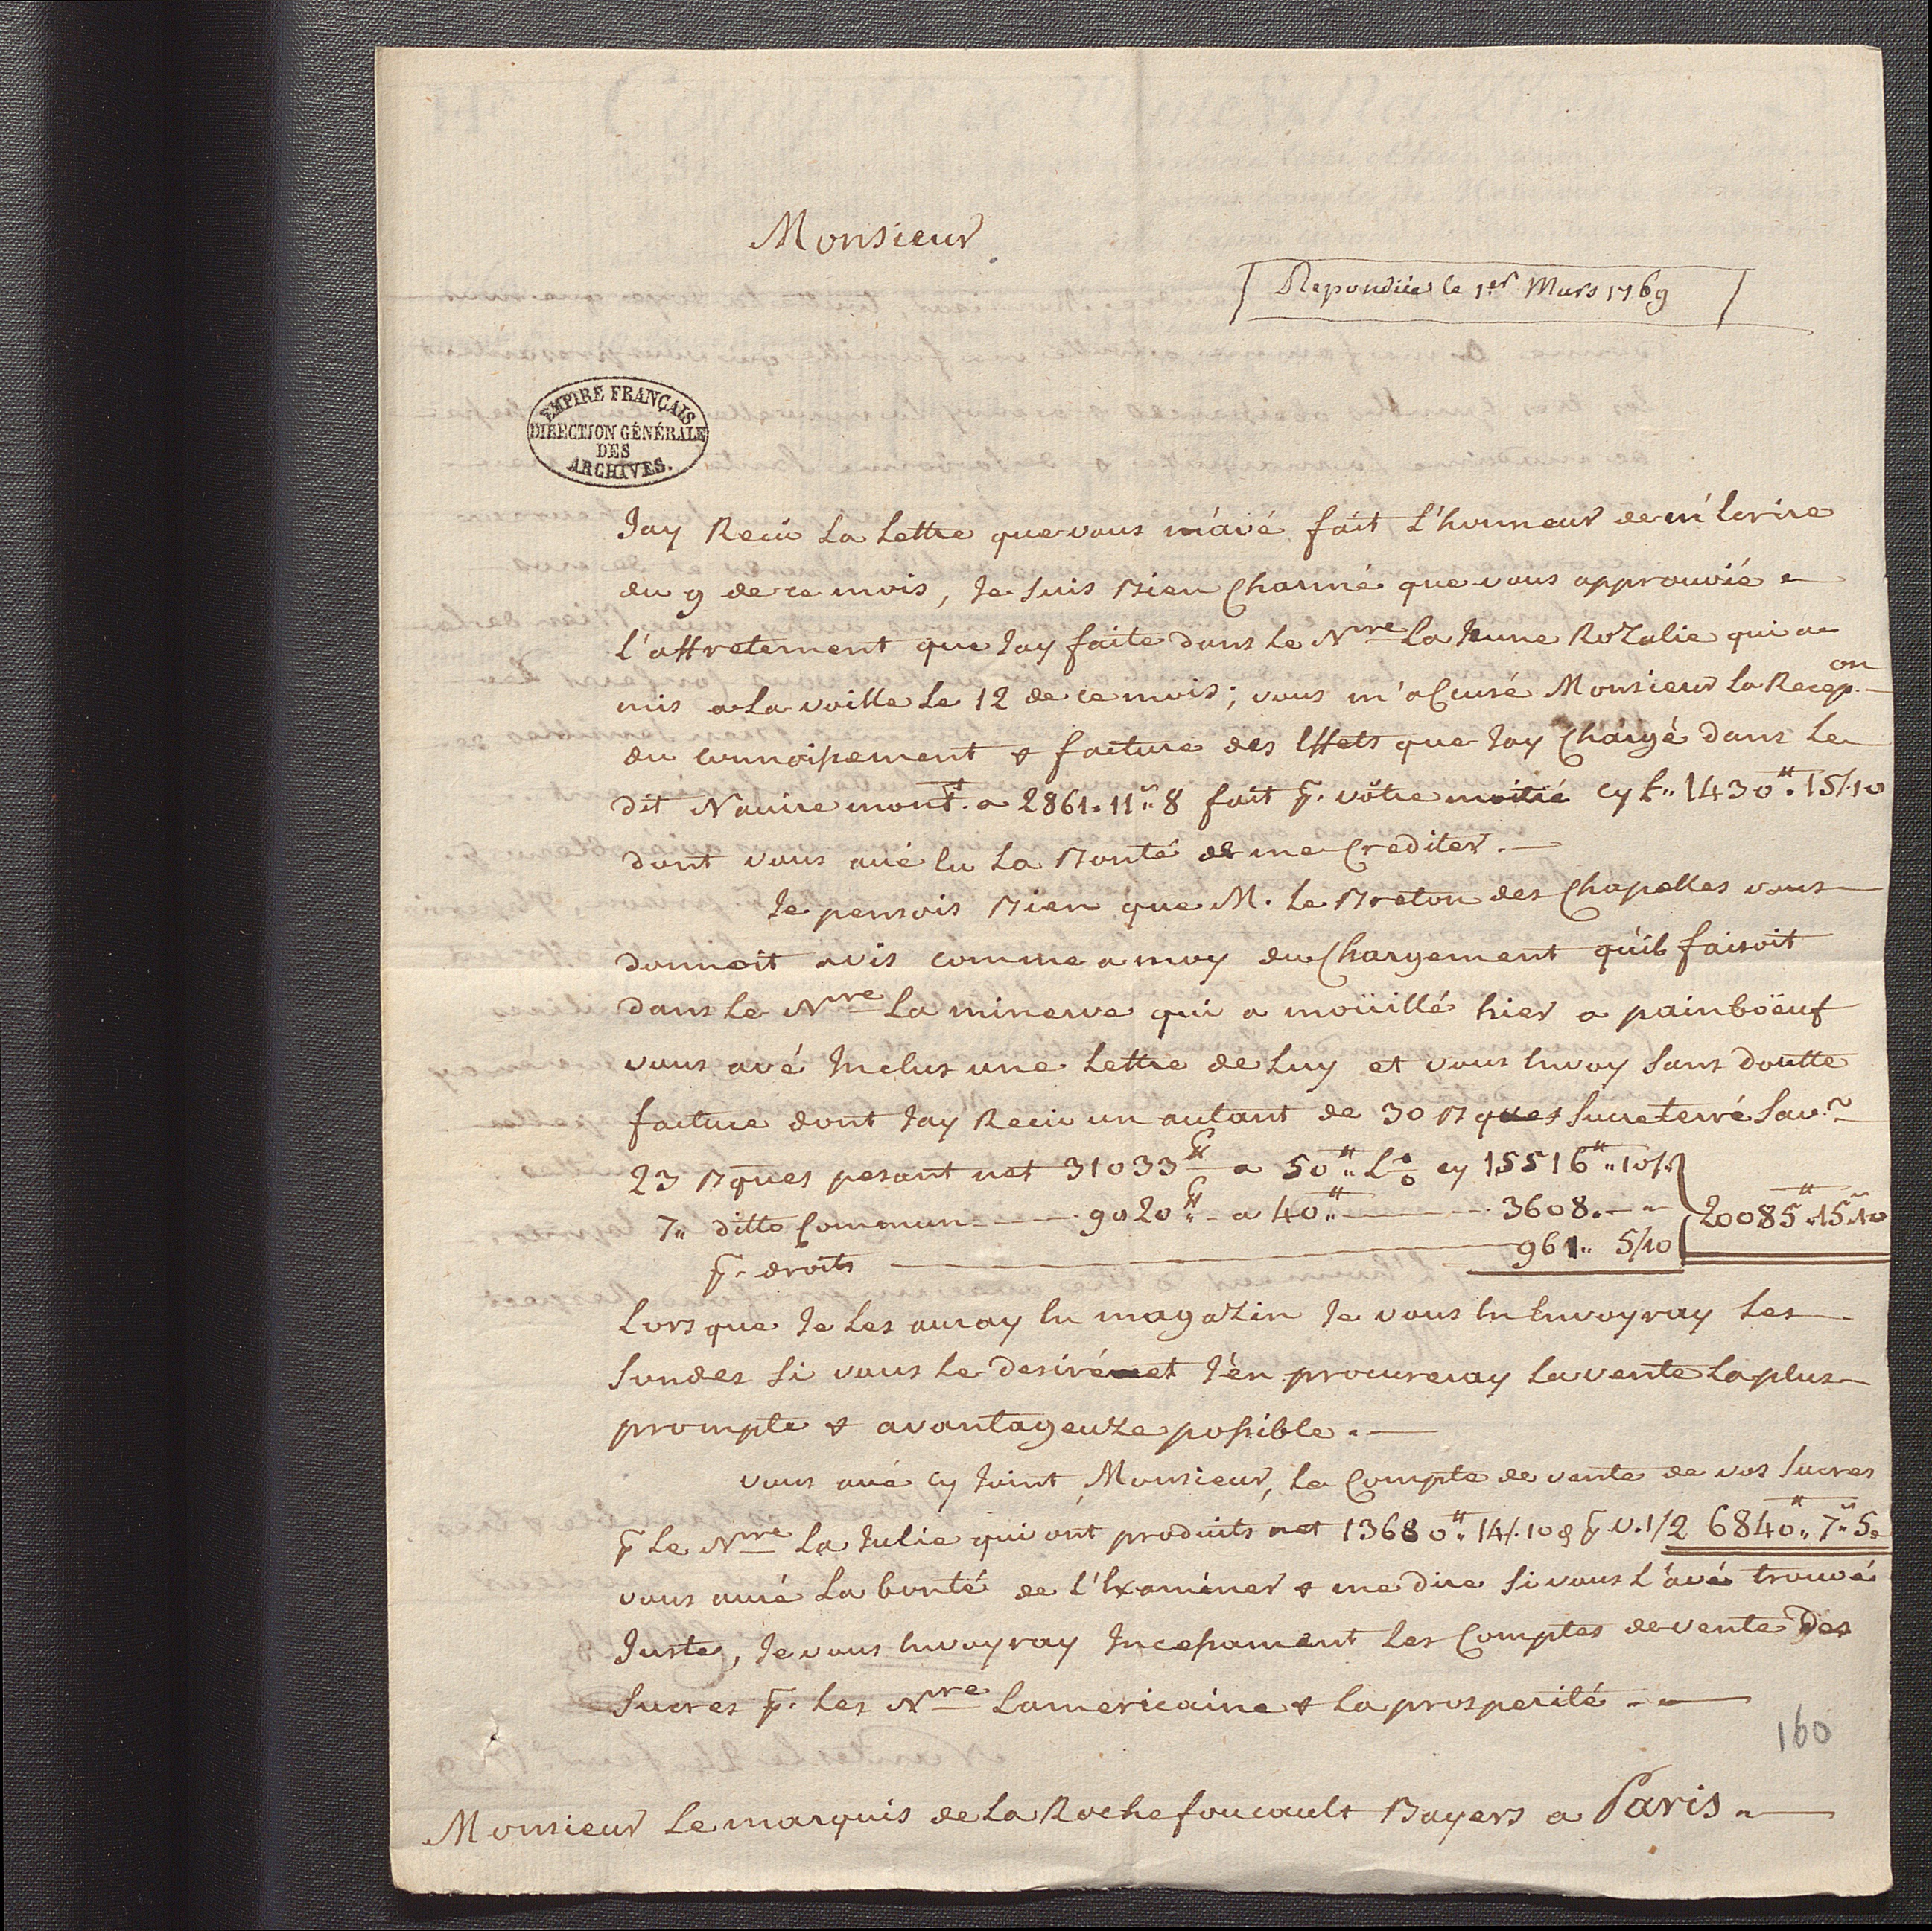 Monsieur
Repondüe le 1er Mars 1769
EMPIRE FRANÇAIS
DIRECTION GÉNÉRALE
DES
ARCHIVES.
Jay Reçu La Lettre que vous m'avé fait L'honneur de m'Ecrire
du 9 de ce mois, Je suis Bien Charmé que vous approuvié
L'affretement que Jay faite dans le Nre La Jeune Rozalie qui a
mis a La voille Le 12 de ce mois; vous m'acCusé Monsieur La Recepon
du connoissement & facture des Effets que Jay Chargé dans Le
dit Navire mont. a 2861.11.8 fait p. vôtre moitié cy £.. 1430.. 15/10
dont vous avé Eu La Bonté de me Crediter.
Je pensois Bien que M. Le Breton des Chapelles vous
donnoit avis comme a moy du Chargement qu'il faisoit
dans Le Nre La minerve qui a moüillé hier a painböeuf
vous avé Inclus une Lettre de Luy et vous Envoy Sans doutte
facture dont Jay Reçu un autant de 30 Bques Sucre terré Sav.r
23 Bques pesant net 31033 ₶ a 50 ₶.. L% cy 15516 ₶.. 10/.
7.. ditto Commun 9020 ₶ a 40 ₶.. 3608.. 20085 ₶.. 15..10
p. droits 961.. 5/10
Lors que Je Les auray En magazin Je vous En Envoyray Les
Sondes Si vous Le desiré et J'en procureray La vente La plus
prompte & avantageuze possible.
vous avé Cy Joint, Monsieur, Le Compte de vente de vos Sucres
p Le Nre La Julie qui ont produits net 13680 ₶.. 14/.10 & p v. 1/2 6840 ₶.. 7..5
vous auré La bonté de L'Examiner & me dire Si vous L'avé trouvé
Juste, Je vous Envoyray Incessament Les Comptes de vente Des
Sucres p. Les Nre Lamericaine & La prosperité
160
Monsieur Le marquis de La Rochefoucault Bayers a Paris.